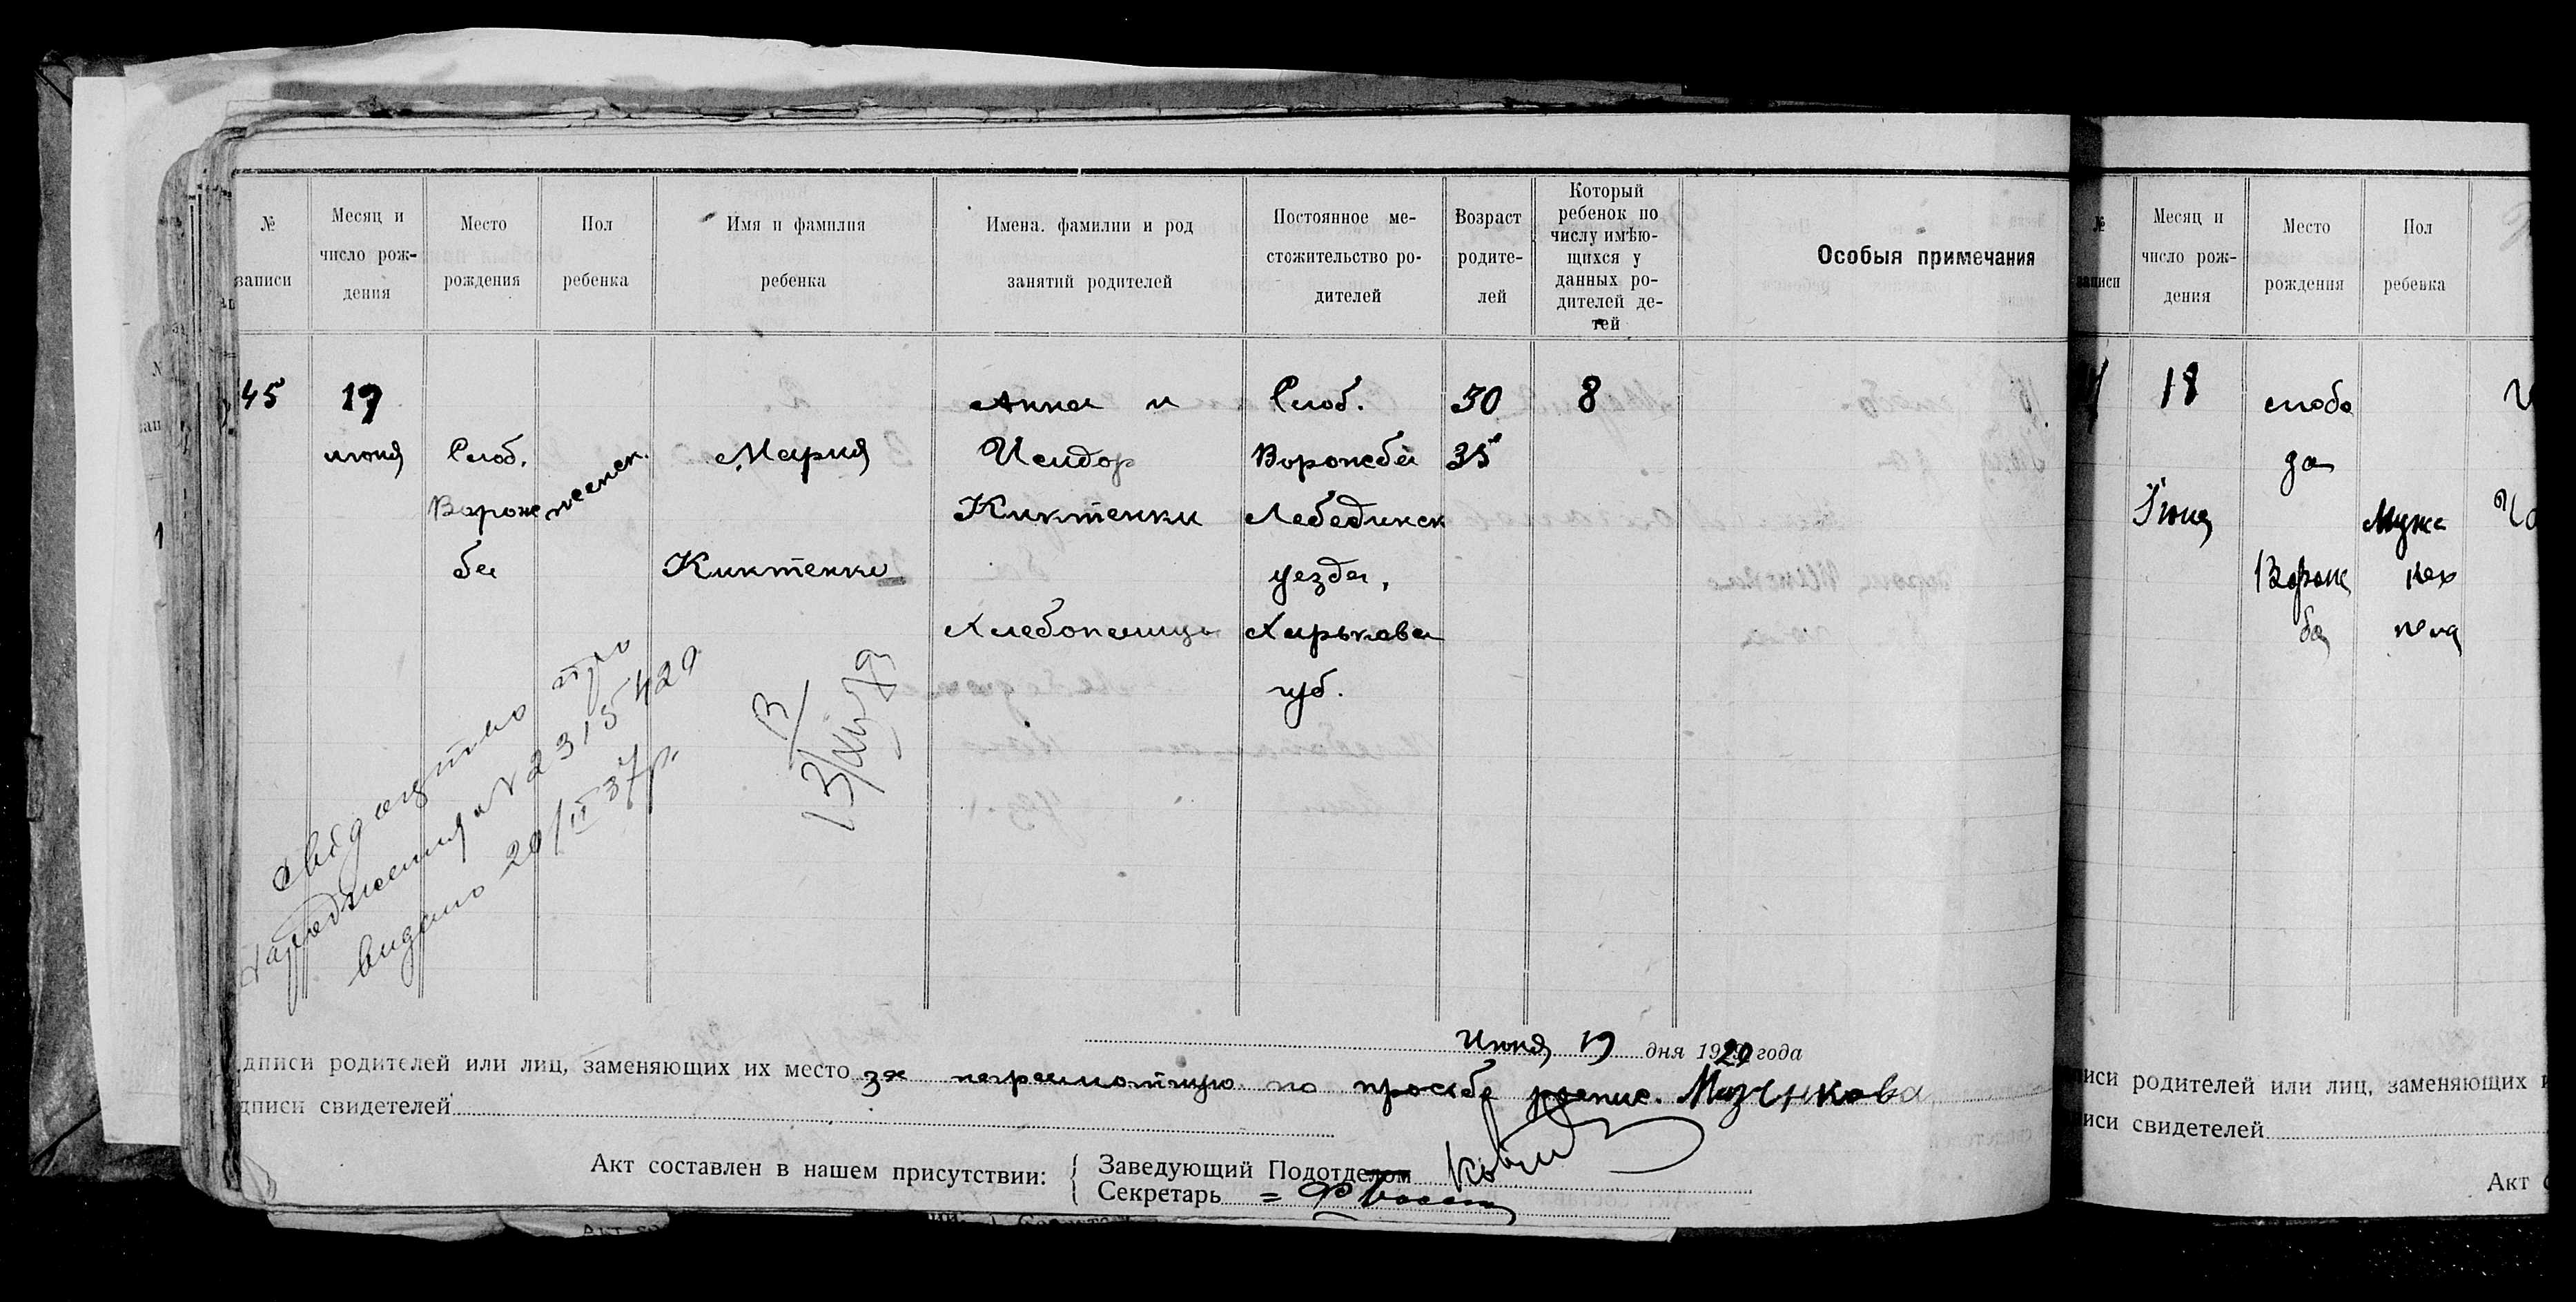 № записи
Месяц и число рождения
Место рождения
Пол ребенка
Имя и фамилия ребенка
Имена. фамилии и род занятий родителей
Постоянное местожительство родителей
Возраст родителей
Который ребенок по числу имѣющихся у данных родителей детей
Особыя примечания
45
19 июня
Слоб. Ворожба
женск.
Мария Киктенко
Анна и
Исидор
Киктенки
Хлебопашцы
Слоб.
Ворожба
Лебединск
уезда,
Харьковск
губ.
30
35
8
свідоцтво про
народження № 2315420
видано 20/II 37р.
Июня 19 дня 1920 года
дписи родителей или лиц, заменяющих их место за неграмотную по просьбе роспис.
дписи свидетелей
Акт составлен в нашем присутствии:
Заведующий Подотделом
Секретарь
№ записи
Месяц и число рождения
Место рождения
Пол ребенка
18
Июня
слобо
да
Ворож
ба
Муже
ского
пола
иси родителей или лиц, заменяющих и
иси свидетелей
Акт